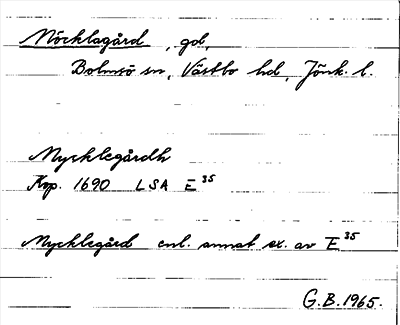 Nöcklagård, gd,
Bolmsö sn, Västbo hd, Jönk. l.
Mycklegårdh
Kop. 1690 LSA E 35
Mycklegård enl. annat ex. av E 35
G.B. 1965.